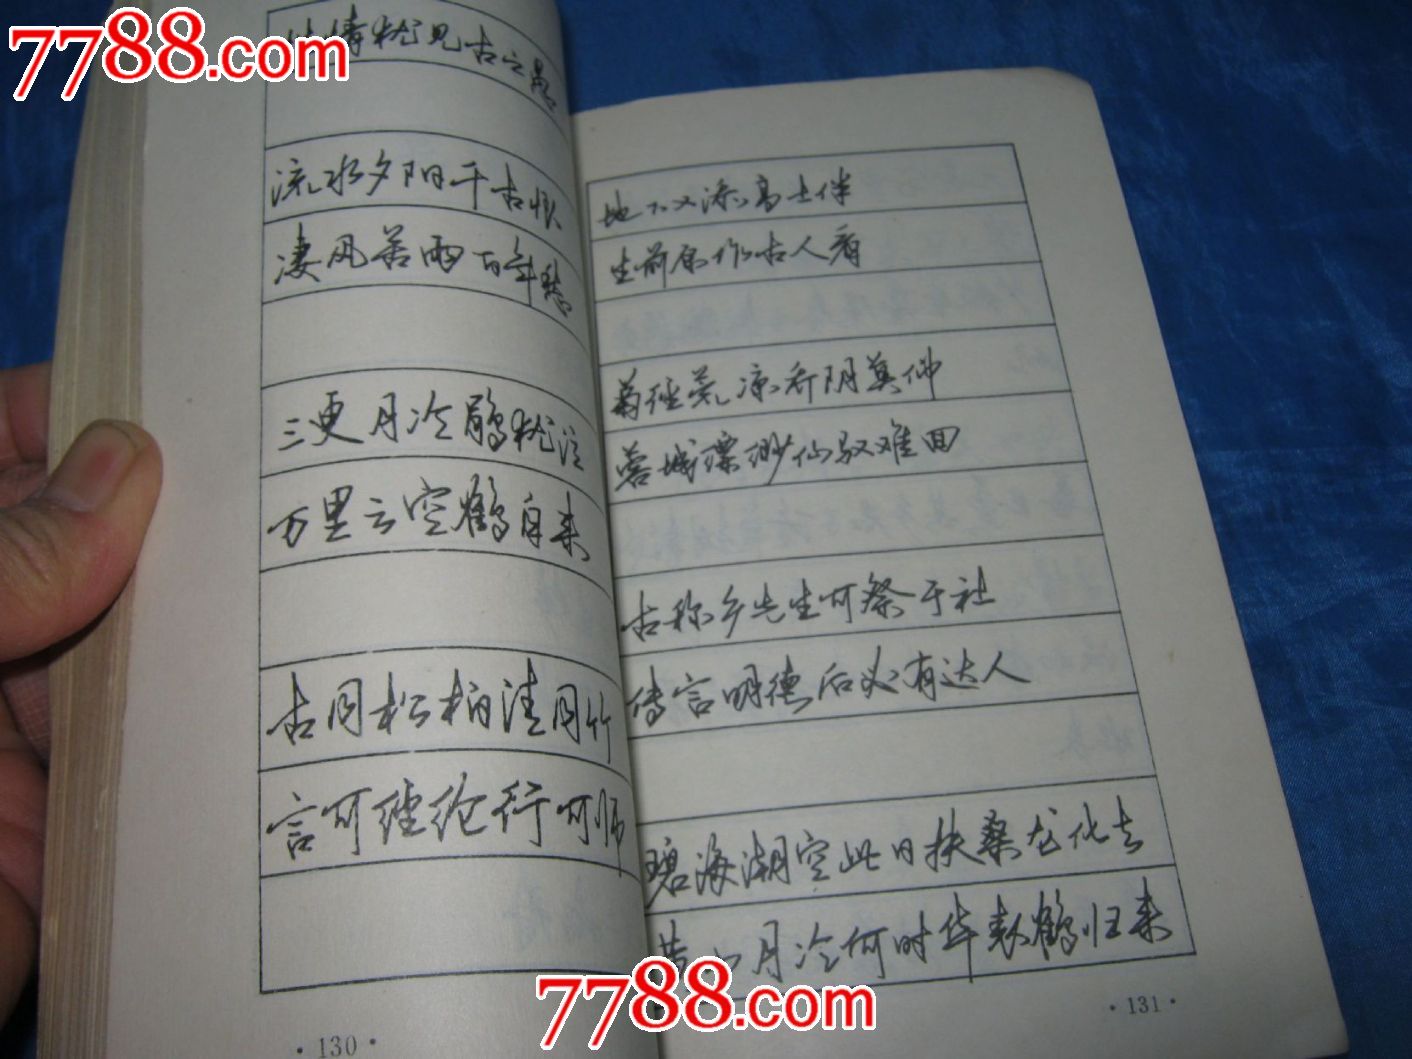 7788.com
情犹见古之
流水夕阳千古恨
凄风苦雨百年愁
三更月冷鹃犹泣
万里云空鹤自来
古同松柏清同竹
言可经纶行可师
·130·
地下又添高士伴
生前原作古人看
菊径荒凉乔阴莫仰
蓉城缥缈仙驭难回
古称乡先生可祭于社
传言明德后必有达人
碧海潮空此日扶桑龙化去
黄山月冷何时华表鹤归来
·131·
7788.com